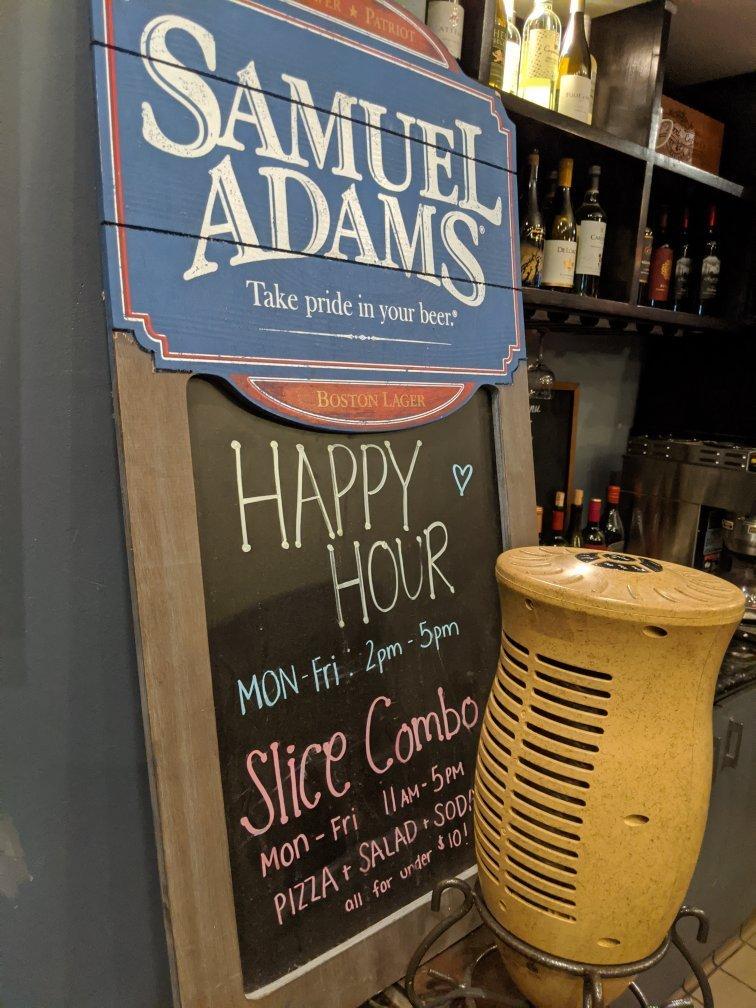 PATRIOT
SAMUEL
ADAMS®
Take pride in your beer.®
BOSTON LAGER
HAPPY
HOUR
MON-Fri : 2pm - 5pm
Slice Combo
Mon - Fri 11AM - 5PM
PIZZA + SALAD + SODA
all for under $10!